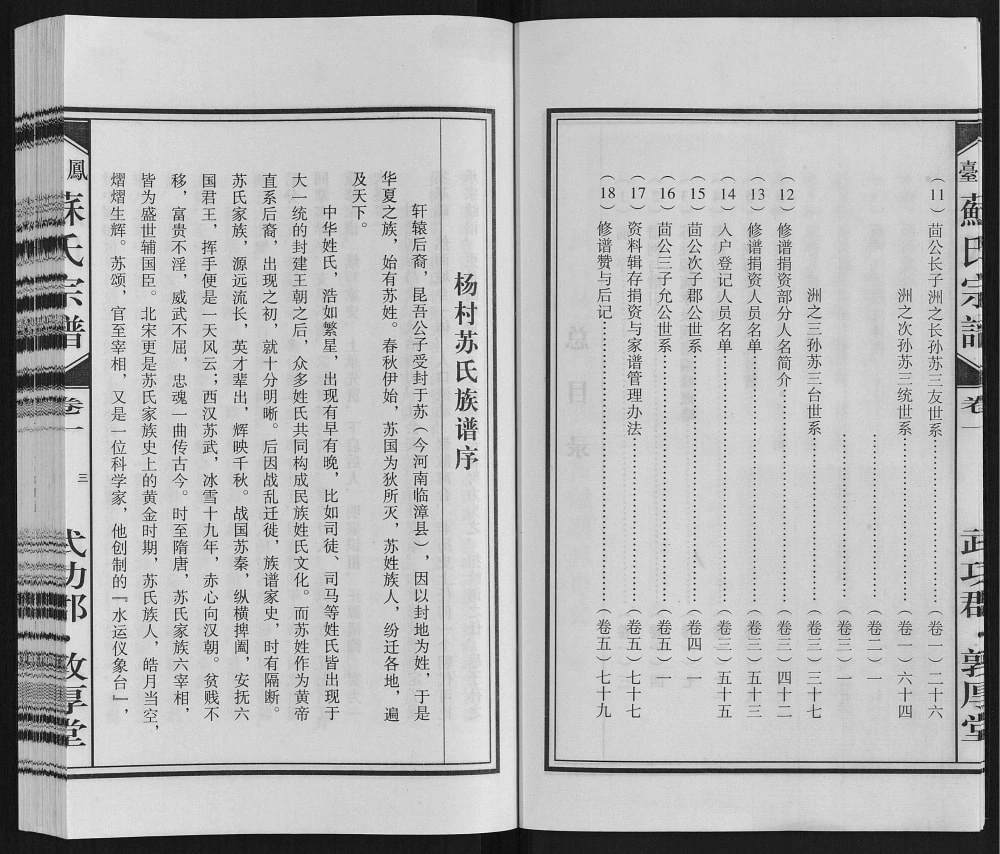 臺 蘇氏宗譜 卷一 武功郡·敦厚堂
（11）茴公长子洲之长孙苏三友世系……………………（卷一）二十六
洲之次孙苏三统世系……………………（卷一）六十四
……………………（卷二）一
……………………（卷三）一
洲之三孙苏三台世系……………………（卷三）三十七
（12）修谱捐资部分人名简介……………………（卷三）四十二
（13）修谱捐资人员名单……………………（卷三）五十一
（14）入户登记人员名单……………………（卷三）五十五
（15）茴公次子郡公世系……………………（卷四）一
（16）茴公三子允公世系……………………（卷五）一
（17）资料辑存捐资与家谱管理办法……………………（卷五）七十七
（18）修谱赞与后记……………………（卷五）七十九
杨村苏氏族谱序
轩辕后裔，昆吾公子受封于苏（今河南临漳县），因以封地为姓，于是
华夏之族，始有苏姓。春秋伊始，苏国为狄所灭，苏姓族人，纷迁各地，遍
及天下。
中华姓氏，浩如繁星，出现有早有晚，比如司徒、司马等姓氏皆出现于
大一统的封建王朝之后，众多姓氏共同构成民族姓氏文化。而苏姓作为黄帝
直系后裔，出现之初，就十分明晰。后因战乱迁徙，族谱家史，时有隔断。
苏氏家族，源远流长，英才辈出，辉映千秋。战国苏秦，纵横捭阖，安抚六
国君王，挥手便是一天风云；西汉苏武，冰雪十九年，赤心向汉朝。贫贱不
移，富贵不淫，威武不屈，忠魂一曲传古今。时至隋唐，苏氏家族六宰相，
皆为盛世辅国臣。北宋更是苏氏家族史上的黄金时期，苏氏族人，皓月当空，
熠熠生辉。苏颂，官至宰相，又是一位科学家，他创制的『水运仪象台』，
鳳 蘇氏宗譜 卷一 三 武功郡·敦厚堂